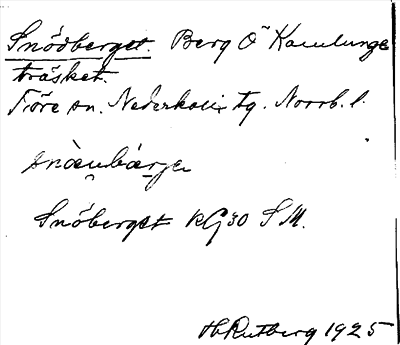 Snödberget. Berg Ö Kamlunge
träsket.
Töre sn. Nederkalix tg. Norrb. l.
Snöberget KG30 SM.
HRutberg 1925